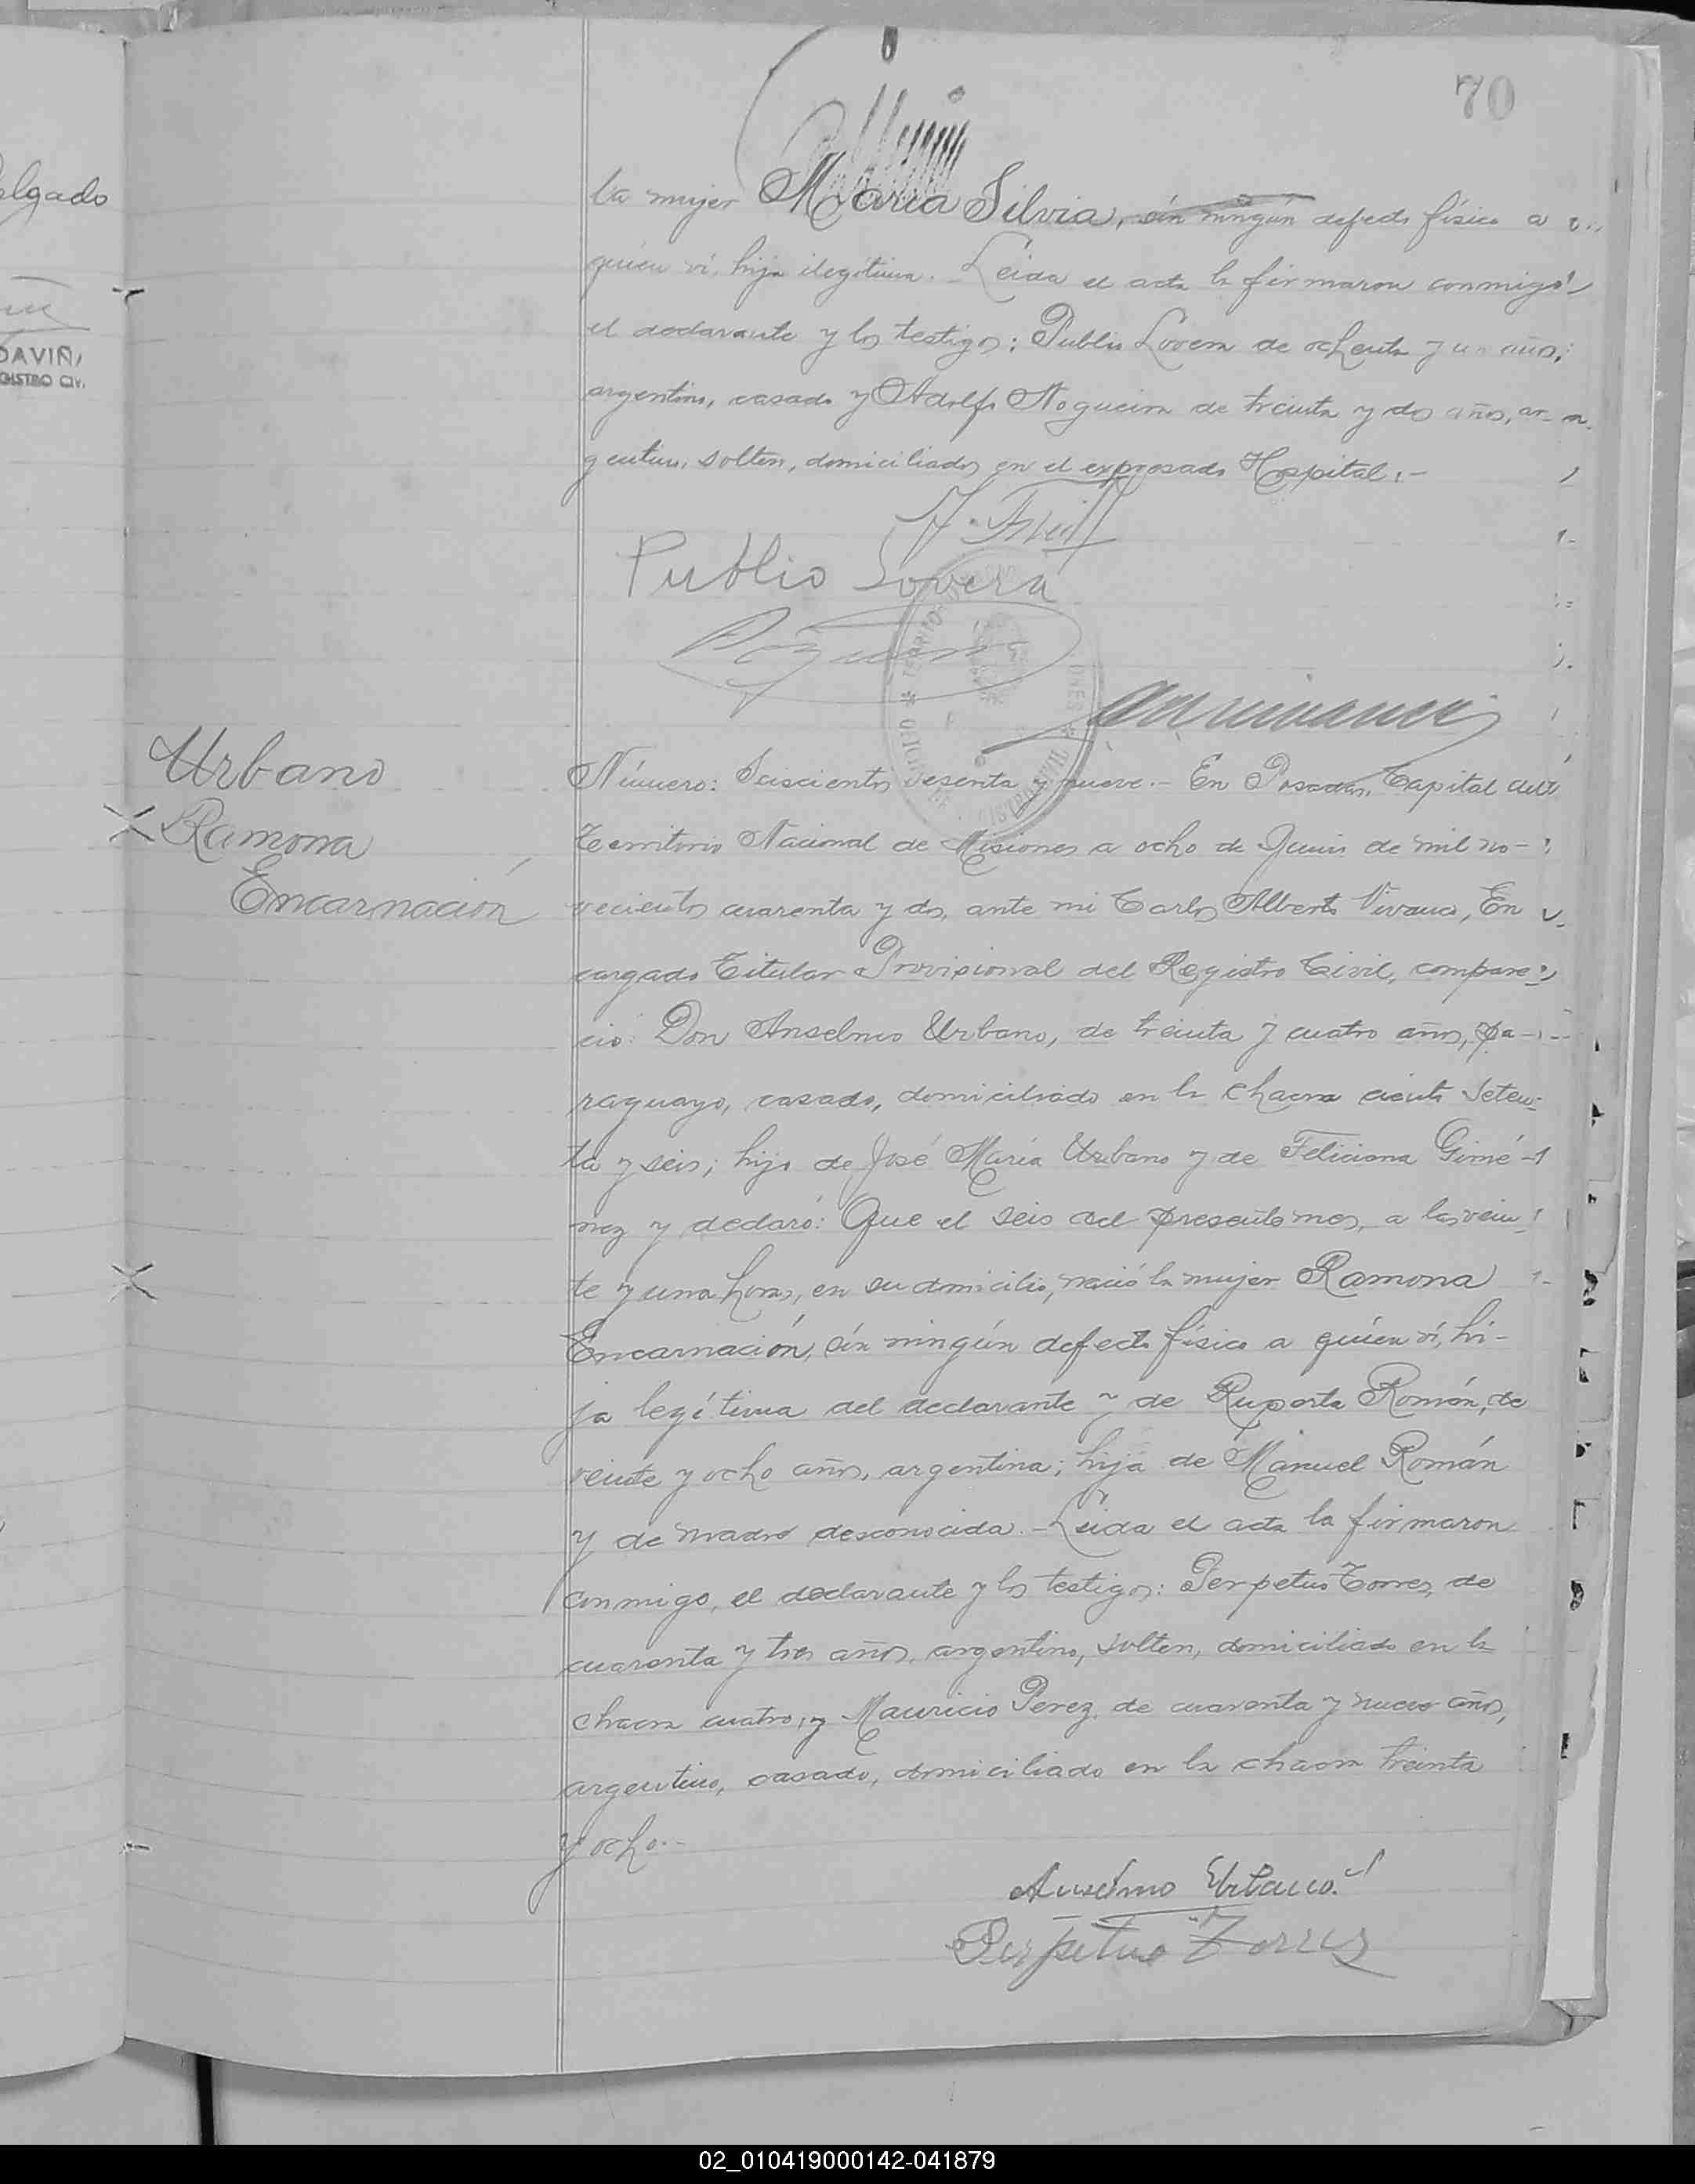 70
elgado
la mujer María Silvia, sin ningún defecto físico a
quien ví, hija ilegítima.- Leída el acta la firmaron conmigo
el declarante y los testigos: Publio Lovera de ochenta y un años,
argentino, casado y Adolfo Nogueira de treinta y dos años, ar-
gentino, soltero, domiciliados en el expresado Hospital.-
DAVIÑ
GISTRO CIV.
Publio Lovera
Urbano
Ramona
Encarnación
Número: Seiscientos sesenta y nueve.- En Posadas, Capital del
Territorio Nacional de Misiones a ocho de Junio de mil no-
vecientos cuarenta y dos, ante mi Carlos Alberto Vivanco, En
cargado Titular Provisional del Registro Civil, compare-
ció: Don Anselmo Urbano, de treinta y cuatro años, pa-
raguayo, casado, domiciliado en la chacra ciento seten-
ta y seis; hijo de José María Urbano y de Feliciana Gimé-
nez y declaró: Que el seis del presente mes, a las vein
te y una horas, en su domicilio, nació la mujer Ramona
Encarnación, sin ningún defecto físico a quien ví, hi-
ja legítima del declarante y de Ruperta Román, de
veinte y ocho años, argentina; hija de Manuel Román
y de madre desconocida.- Leída el acta la firmaron
conmigo, el declarante y los testigos: Perpetuo Torres, de
cuarenta y tres años, argentino, soltero, domiciliado en la
chacra cuatro, y Mauricio Perez, de cuarenta y nueve años,
argentino, casado, domiciliado en la chacra treinta
y ocho.-
Anselmo Urbano
Perpetuo Torres
02_010419000142-041879